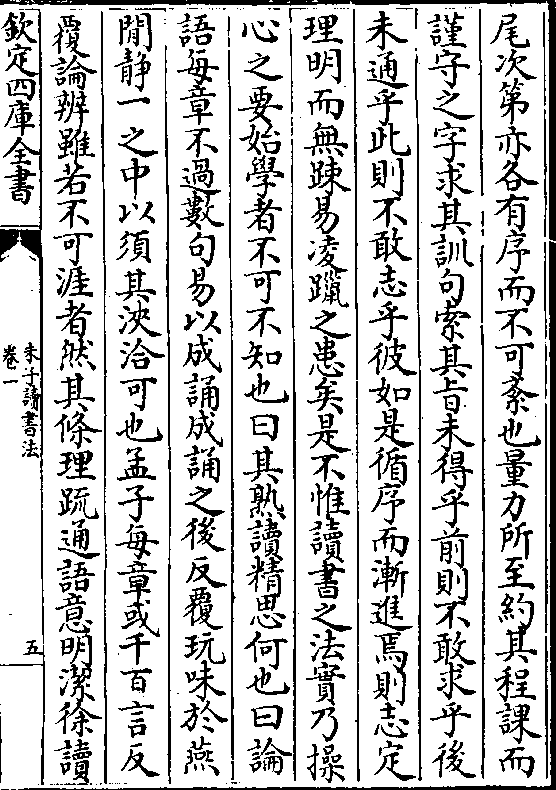 尾次第亦各有序而不可紊也量力所至約其程課而
謹守之字求其訓句索其旨未得乎前則不敢求乎後
未通乎此則不敢志乎彼如是循序而漸進焉則志定
理明而無踈易凌躐之患矣是不惟讀書之法實乃操
心之要始學者不可不知也曰其熟讀精思何也曰論
語每章不過數句易以成誦成誦之後反覆玩味於燕
閒静一之中以須其浹洽可也孟子每章或千百言反
覆論辨雖若不可涯者然其條理疏通語意明潔徐讀
欽定四庫全書
朱子讀書法
卷一
五